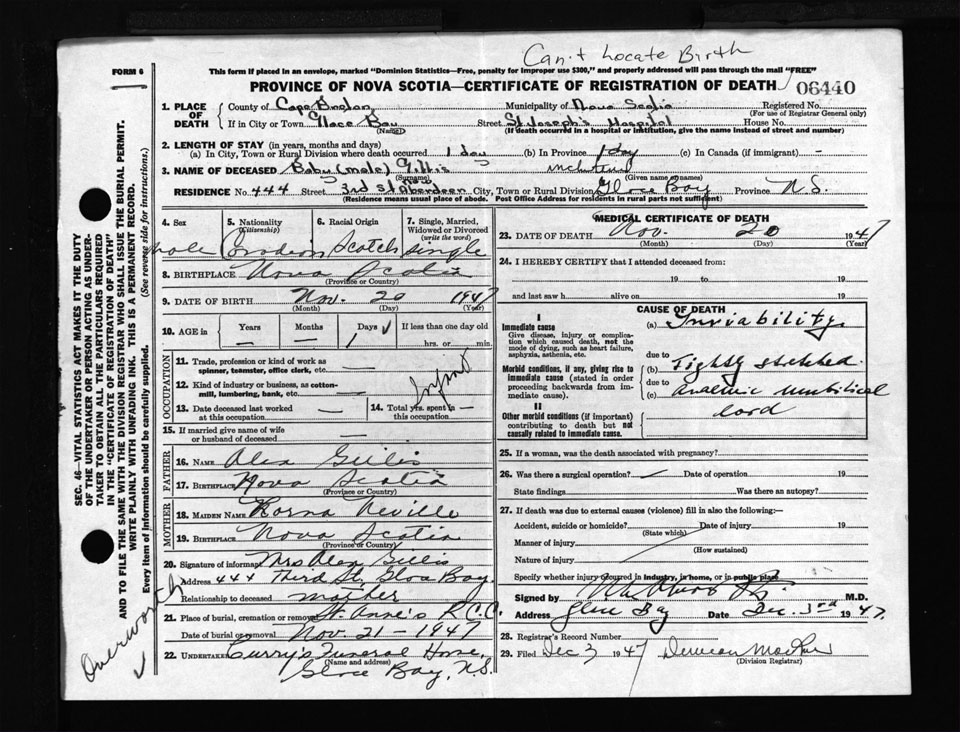 Can't Locate Birth
FORM 6
This form if placed in an envelope, marked "Dominion Statistics—Free, penalty for improper use $300," and properly addressed will pass through the mail "FREE"
PROVINCE OF NOVA SCOTIA—CERTIFICATE OF REGISTRATION OF DEATH
06440
1. PLACE OF DEATH
County of Cape Breton Municipality of Nova Scotia Registered No.
(For use of Registrar General only)
If in City or Town Glace Bay Street St. Joseph's Hospital House No.
(Name) (If death occurred in a hospital or institution, give the name instead of street and number)
2. LENGTH OF STAY (in years, months and days)
(a) In City, Town or Rural Division where death occurred 1 day (b) In Province 1 day (c) In Canada (if immigrant) -
3. NAME OF DECEASED Baby (male) Gillis
(Surname) (Given name or names)
RESIDENCE No. 444 Street 3rd St City, Town or Rural Division Glace Bay Province N.S.
(Residence means usual place of abode. Post Office Address for residents in rural parts not sufficient)
4. Sex
male
5. Nationality
(Citizenship)
Canadian
6. Racial Origin
Scotch
7. Single, Married, Widowed or Divorced
(write the word)
single
8. BIRTHPLACE Nova Scotia
(Province or Country)
9. DATE OF BIRTH Nov. 20 1947
(Month) (Day) (Year)
10. AGE in Years Months Days If less than one day old
— — 1 hrs. or min.
OCCUPATION
11. Trade, profession or kind of work as spinner, teamster, office clerk, etc. —
12. Kind of industry or business, as cotton-mill, lumbering, bank, etc. —
Infant
13. Date deceased last worked at this occupation —
14. Total yrs. spent in this occupation —
15. If married give name of wife or husband of deceased —
FATHER
16. NAME Alex Gillis
17. BIRTHPLACE Nova Scotia
(Province or Country)
MOTHER
18. MAIDEN NAME Neville
19. BIRTHPLACE Nova Scotia
(Province or Country)
20. Signature of informant Mrs Alex Gillis
Address 444 Third St, Glace Bay.
Relationship to deceased mother
21. Place of burial, cremation or removal St. Anne's R.C.C.
Date of burial or removal Nov. 21 - 1947
22. UNDERTAKER Curry's Funeral Home,
(Name and address)
Glace Bay, N.S.
MEDICAL CERTIFICATE OF DEATH
23. DATE OF DEATH Nov. 20 1947
(Month) (Day) (Year)
24. I HEREBY CERTIFY that I attended deceased from:
19 to 19
and last saw h alive on 19
CAUSE OF DEATH
I
Immediate cause
Give disease, injury or complication which caused death, not the mode of dying, such as heart failure, asphyxia, asthenia, etc.
(a) Inviability.
due to
Morbid conditions, if any, giving rise to immediate cause (stated in order proceeding backwards from immediate cause).
Tightly
due to
(c) Anaemic umbilical
cord
II
Other morbid conditions (if important) contributing to death but not causally related to immediate cause.
25. If a woman, was the death associated with pregnancy?
26. Was there a surgical operation? Date of operation 19
State findings Was there an autopsy?
27. If death was due to external causes (violence) fill in also the following:—
Accident, suicide or homicide? Date of injury 19
(State which)
Manner of injury
(How sustained)
Nature of injury
Specify whether injury occurred in industry, in home, or in public place
Signed by M.D.
Address Glace Bay Date Dec. 3rd 1947.
28. Registrar's Record Number
29. Filed Dec 3 1947
(Division Registrar)
SEC. 46—VITAL STATISTICS ACT MAKES IT THE DUTY
OF THE UNDERTAKER OR PERSON ACTING AS UNDER-
TAKER TO OBTAIN ALL THE PARTICULARS REQUIRED
IN THE "CERTIFICATE OF REGISTRATION OF DEATH"
AND TO FILE THE SAME WITH THE DIVISION REGISTRAR WHO SHALL ISSUE THE BURIAL PERMIT.
WRITE PLAINLY WITH UNFADING INK. THIS IS A PERMANENT RECORD.
Every item of information should be carefully supplied. (See reverse side for instructions.)